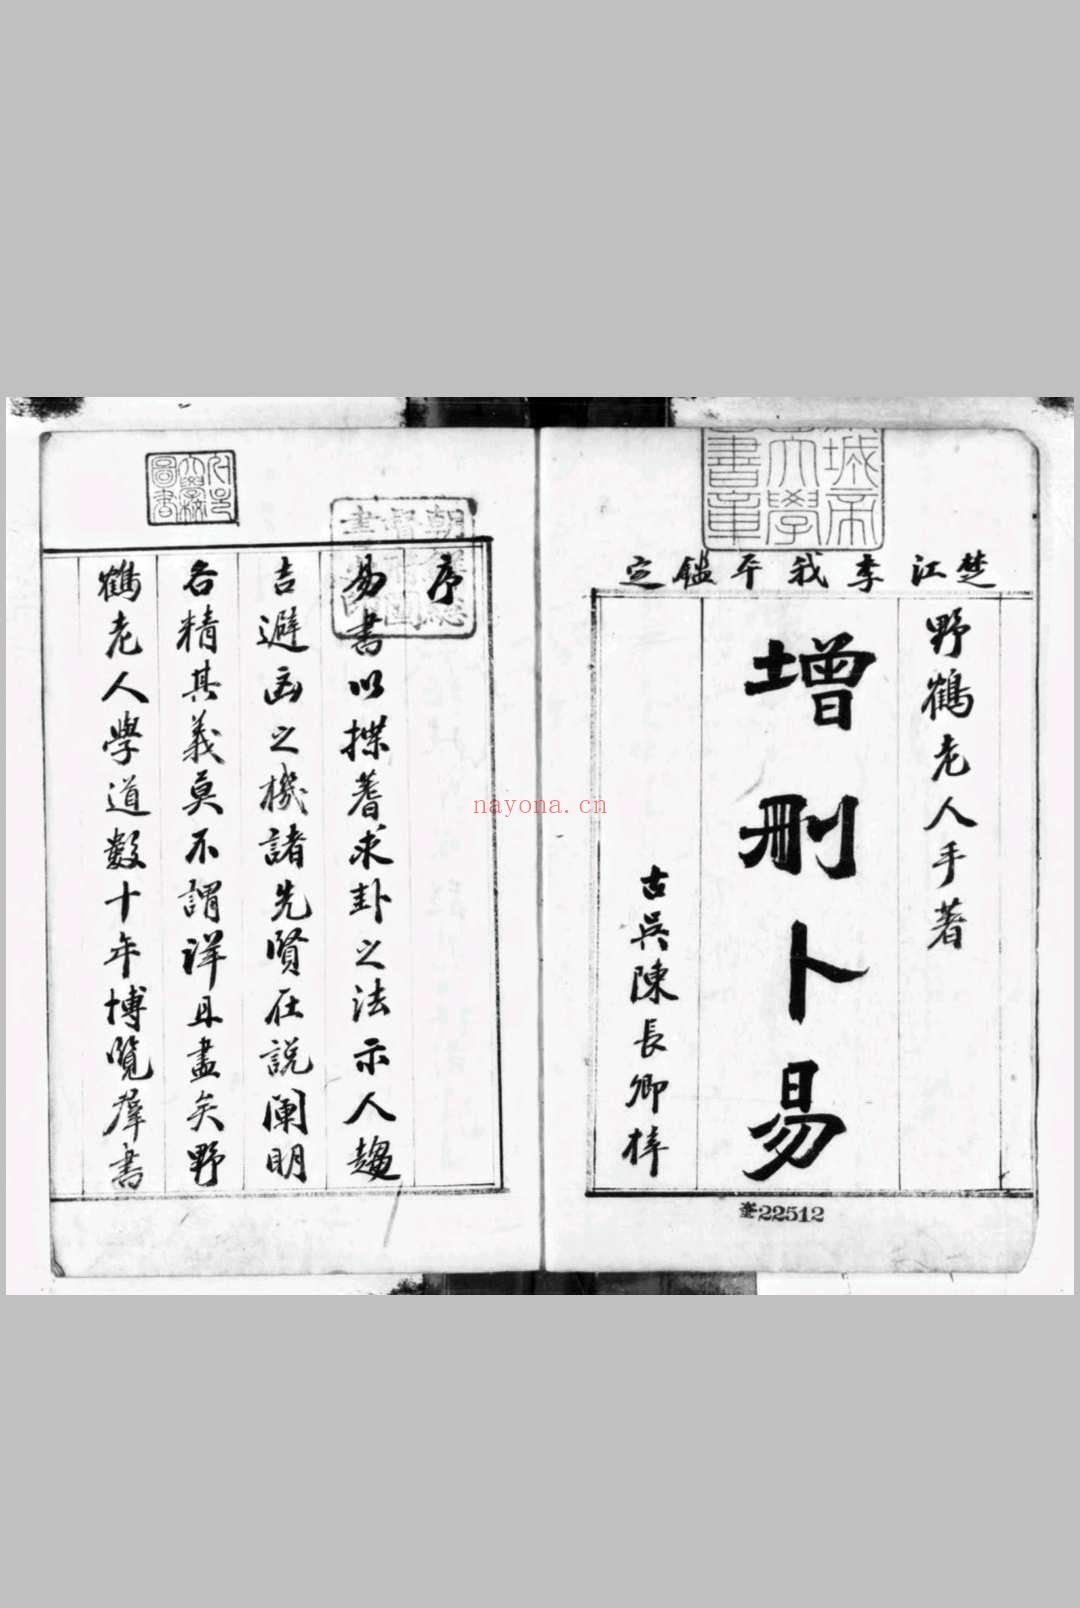 楚江李我平鑑定
野鶴老人手著
增刪卜易
古吳陳長卿梓
奎22512
序
易書以揲蓍求卦之法示人趨
吉避凶之機諸先賢在說闡明
各精其義莫不謂詳且盡矣野
鶴老人學道數十年博覽羣書
nayona.cn